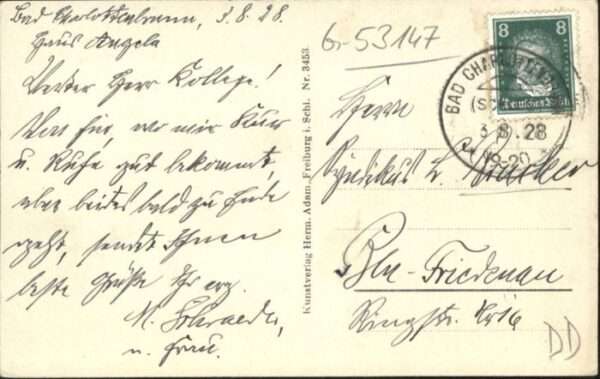 Bad Charlottenbrunn, 3.8.28.
Haus Angela
Werter Herr Kollege!
Von hier, wo mir Kur
u. Ruhe gut bekommt,
aber beides bald zu Ende
geht, sendet Ihnen
beste Grüße Ihr erg.
M. Schraeder,
u. Frau.
Kunstverlag Herm. Adam, Freiburg i. Schl. Nr. 3453.
Gr-53147
8 8
Deutsches Reich
BAD CHARLOTTENBRUNN
3.8.28
18-20
Herrn
Syndikus L.
Bln-Friedenau
Ringstr. Nr 16
DD